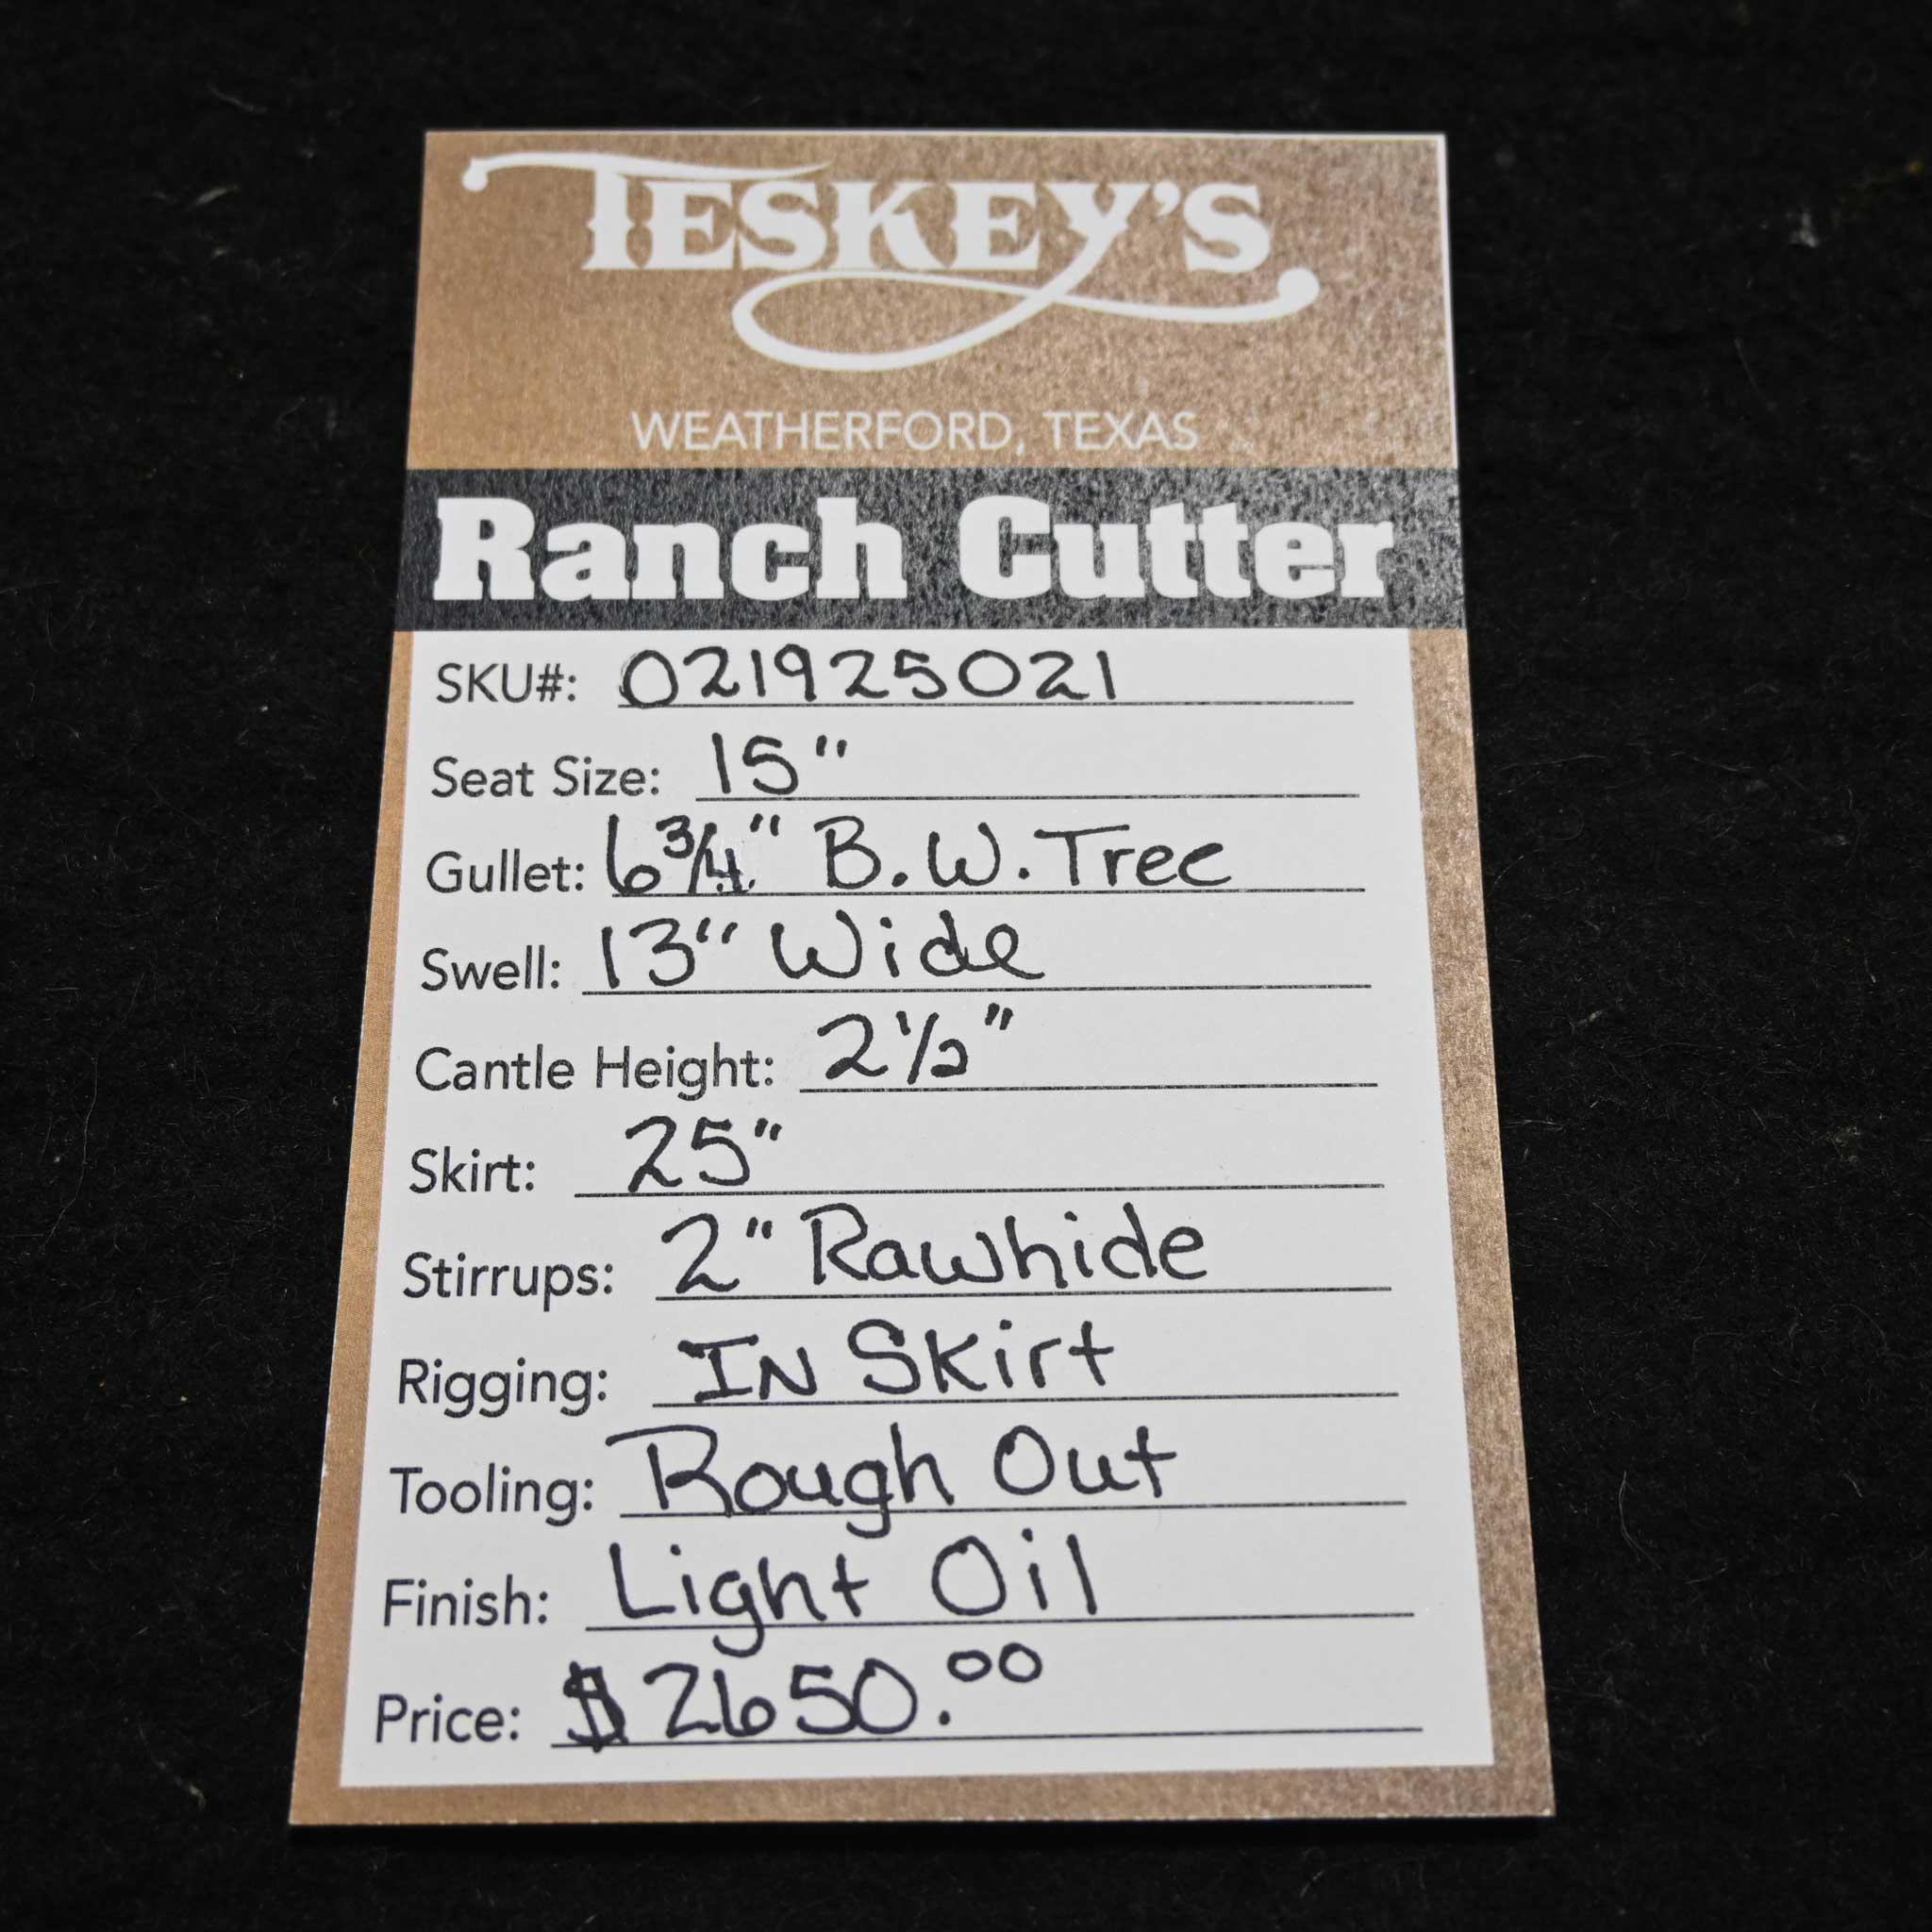 TESKEY'S
WEATHERFORD, TEXAS
Ranch Cutter
SKU#: 021925021
Seat Size: 15"
Gullet: 6 3/4" B.W. Tree
Swell: 13" Wide
Cantle Height: 2 1/2"
Skirt: 25"
Stirrups: 2" Rawhide
Rigging: IN Skirt
Tooling: Rough Out
Finish: Light Oil
Price: $2650.00